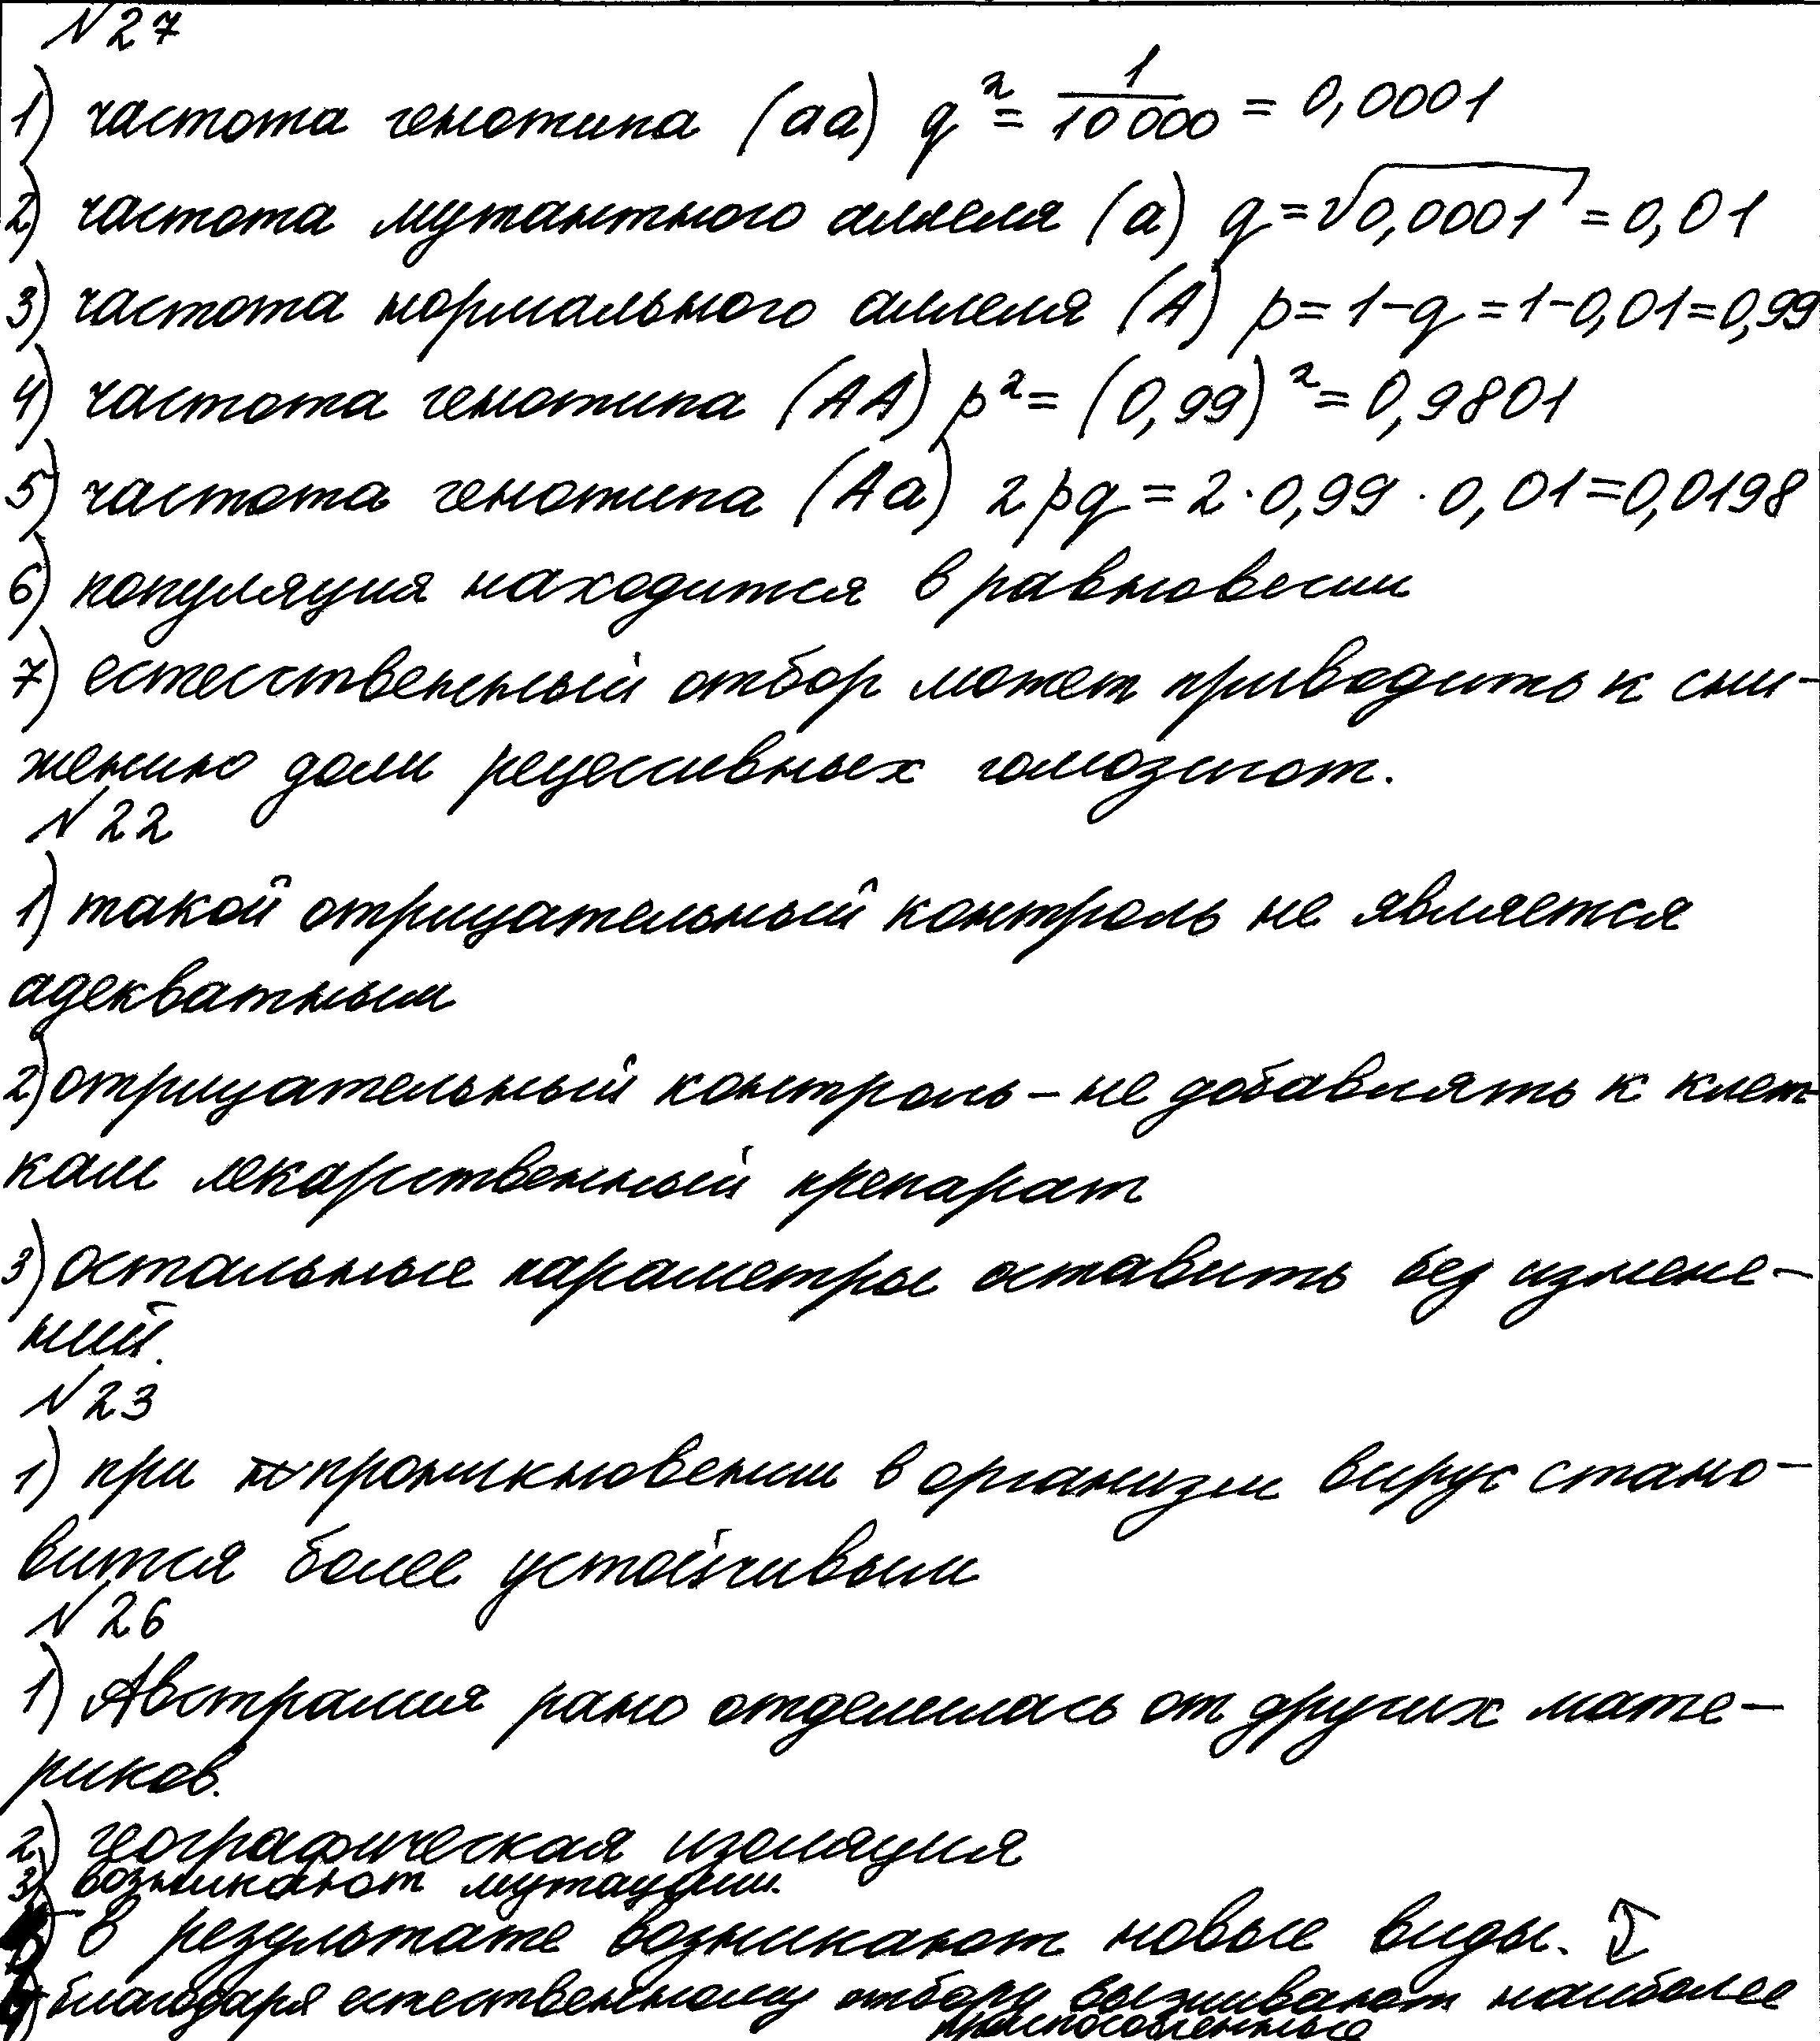 N27
1) частота генотипа (аа) q² = 1/10 000 = 0,0001
2) частота мутантного аллеля (а) q=√0,0001 = 0,01
3) частота нормального аллеля (А) p= 1-q = 1-0,01=0,99
4) частота генотипа (АА) p² = (0,99)² = 0,9801
5) частота генотипа (Аа) 2pq = 2·0,99·0,01=0,0198
6) популяция находится в равновесии
7) естественный отбор может приводить к сни-
жению доли рецессивных гомозигот.
N22
1) такой отрицательный контроль не является
адекватным
2) отрицательный контроль – не добавлять к клет-
кам лекарственный препарат
3) остальные параметры оставить без измене-
ний.
N23
1) при проникновении в организм вирус стано-
вится более устойчивым
N26
1) Австралия рано отделилась от других мате-
риков.
2) географическая изоляция
3) возникают мутации.
в результате возникают новые виды.
благодаря естественному отбору выживают наиболее
приспособленные